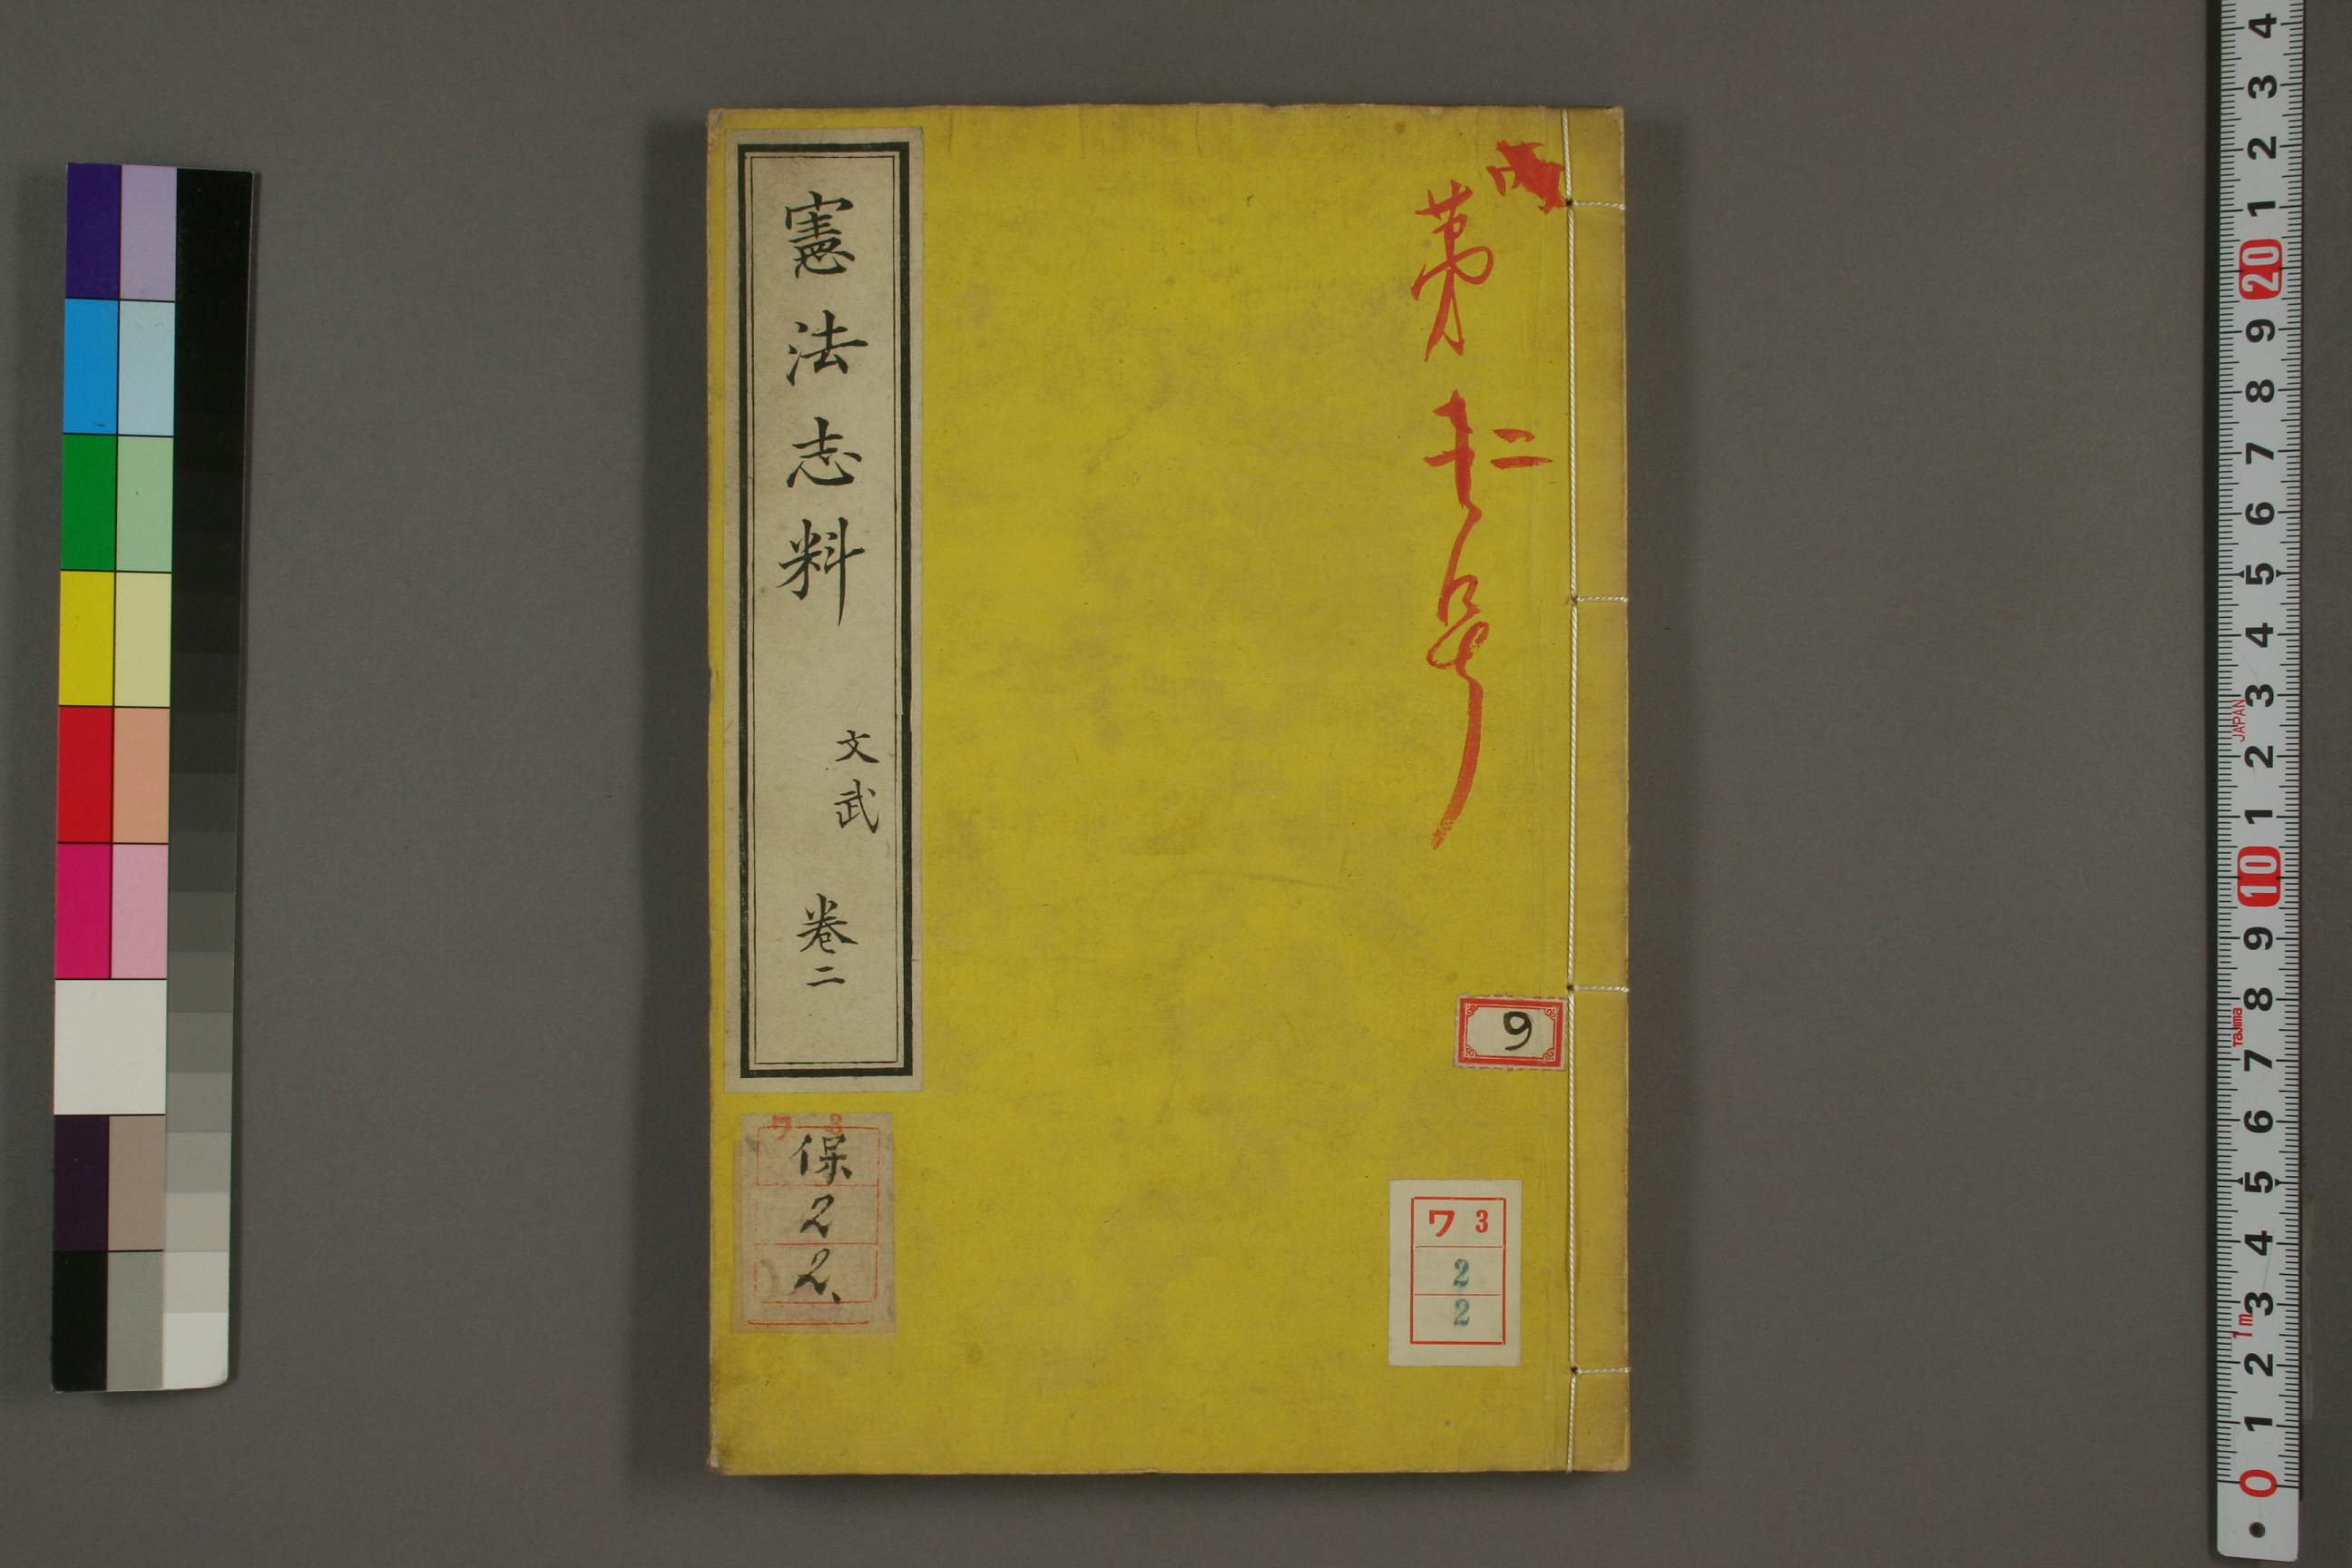 憲法志料
文武
巻二
第
二
号
9
ワ 3
2
2
ワ 3
保
2
2
4
3
2
1
20
9
8
7
6
5
4
3
JAPAN
2
1
10
9
8
Tajima
7
6
5
4
3
1m
2
1
0